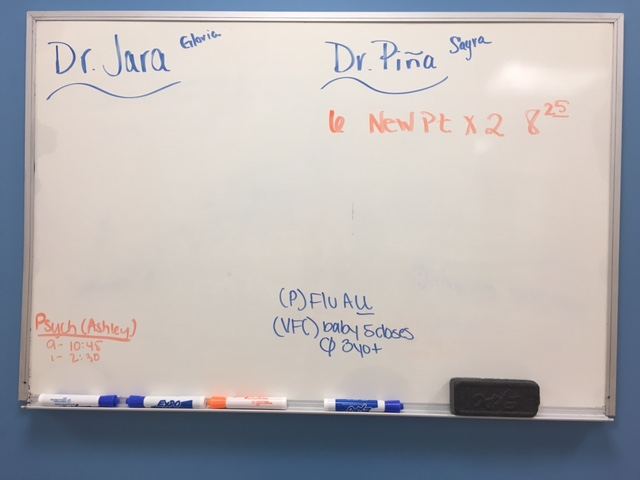 Dr. Jara Gloria
Dr. Piña Sayra
6 New Pt x 2 8 25
(P) Flu All
(VFC) baby 5 doses
3yo+
Psych (Ashley)
9- 10:45
1- 2:30
EXPO
EXPO